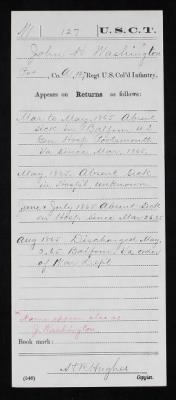 W | 127 | U.S.C.T.
John H. Washington
Co. , 127 Regt U.S. Col'd Infantry.
Appears on Returns as follows:
Mar to May 1865 Absent
sick in Balfour U.S.
Gen Hosp Portsmouth
Va since Mar, 1865.
May, 1865. Absent Sick
in Hospl unknown
June & July 1865 Absent Sick
in Hosp since Mar 26, 65
Aug 1865 Discharged May
65 Balfour, Va order
of War Dept
Name appears also as
J. Washington
Book mark:
(546)
Hughes
Copyist.